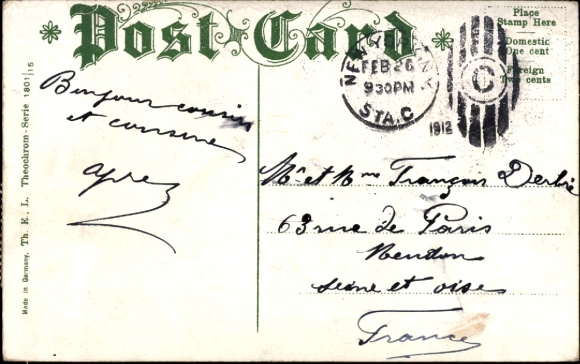 Post Card
Place
Stamp Here
Domestic
One cent
Foreign
Two cents
NEW YORK, N.Y.
FEB 26
9 30 PM
STA. C
1912
C
Bonjour cousin
et cousine
Mr et Mme François
63 rue de Paris
Meudon
Seine et oise
France
Made in Germany. Th. E. L. Theochrom-Serie 1801/15